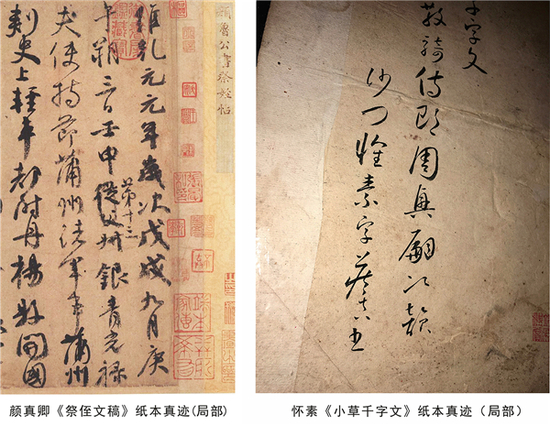 顏魯公書祭姪帖
維乾元元年歲次戊戌九月庚
午朔三日壬申第十三叔銀青光祿
夫使持節蒲州諸軍事蒲州
刺史上輕車都尉丹楊縣開國
千字文
散騎侍郎周興嗣次韻
沙門懷素字藏真
颜真卿《祭侄文稿》纸本真迹(局部)
怀素《小草千字文》纸本真迹（局部）